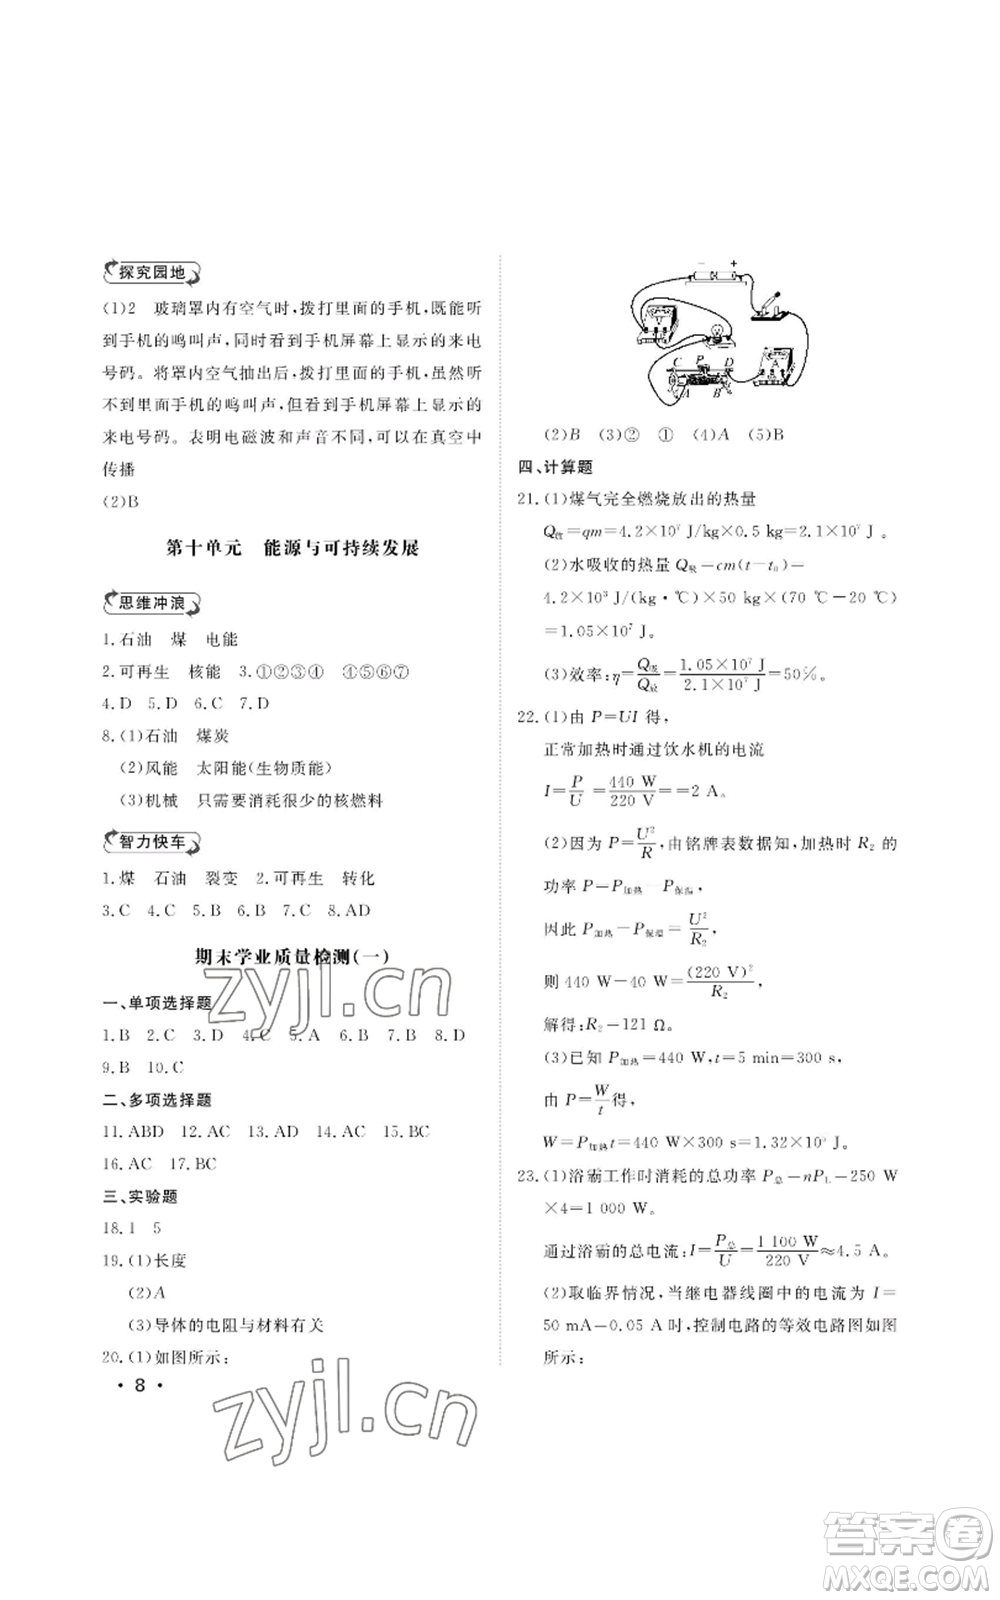 探究园地
(1)2　玻璃罩内有空气时,拨打里面的手机,既能听
到手机的鸣叫声,同时看到手机屏幕上显示的来电
号码。将罩内空气抽出后,拨打里面的手机,虽然听
不到里面手机的鸣叫声,但看到手机屏幕上显示的
来电号码。表明电磁波和声音不同,可以在真空中
传播
(2)B
第十单元　能源与可持续发展
思维冲浪
1.石油　煤　电能
2.可再生　核能　3.①②③④　④⑤⑥⑦
4.D　5.D　6.C　7.D
8.(1)石油　煤炭
(2)风能　太阳能(生物质能)
(3)机械　只需要消耗很少的核燃料
智力快车
1.煤　石油　裂变　2.可再生　转化
3.C　4.C　5.B　6.B　7.C　8.AD
期末学业质量检测(一)
一、单项选择题
1.B　2.C　3.D　4.C　5.A　6.B　7.B　8.D
9.B　10.C
二、多项选择题
11.ABD　12.AC　13.AD　14.AC　15.BC
16.AC　17.BC
三、实验题
18.1　5
19.(1)长度
(2)A
(3)导体的电阻与材料有关
20.(1)如图所示:
· 8 ·
− +
C P D
A B
(2)B　(3)②　①　(4)A　(5)B
四、计算题
21.(1)煤气完全燃烧放出的热量
Q放=qm=4.2×10⁷ J/kg×0.5 kg=2.1×10⁷ J。
(2)水吸收的热量 Q吸=cm(t−t₀)=
4.2×10³ J/(kg·℃)×50 kg×(70 ℃−20 ℃)
=1.05×10⁷ J。
(3)效率:η=Q吸/Q放=1.05×10⁷ J/2.1×10⁷ J=50%。
22.(1)由 P=UI 得,
正常加热时通过饮水机的电流
I=P/U=440 W/220 V==2 A。
(2)因为 P=U²/R,由铭牌表数据知,加热时 R₂ 的
功率 P=P加热−P保温,
因此 P加热−P保温=U²/R₂,
则 440 W−40 W=(220 V)²/R₂,
解得:R₂=121 Ω。
(3)已知 P加热=440 W,t=5 min=300 s,
由 P=W/t得,
W=P加热t=440 W×300 s=1.32×10⁵ J。
23.(1)浴霸工作时消耗的总功率 P总=nPL=250 W
×4=1 000 W。
通过浴霸的总电流:I=P总/U=1 100 W/220 V≈4.5 A。
(2)取临界情况,当继电器线圈中的电流为 I=
50 mA=0.05 A时,控制电路的等效电路图如图
所示:
zyjl.cn
zyjl.cn
答案圈
MXQE.COM